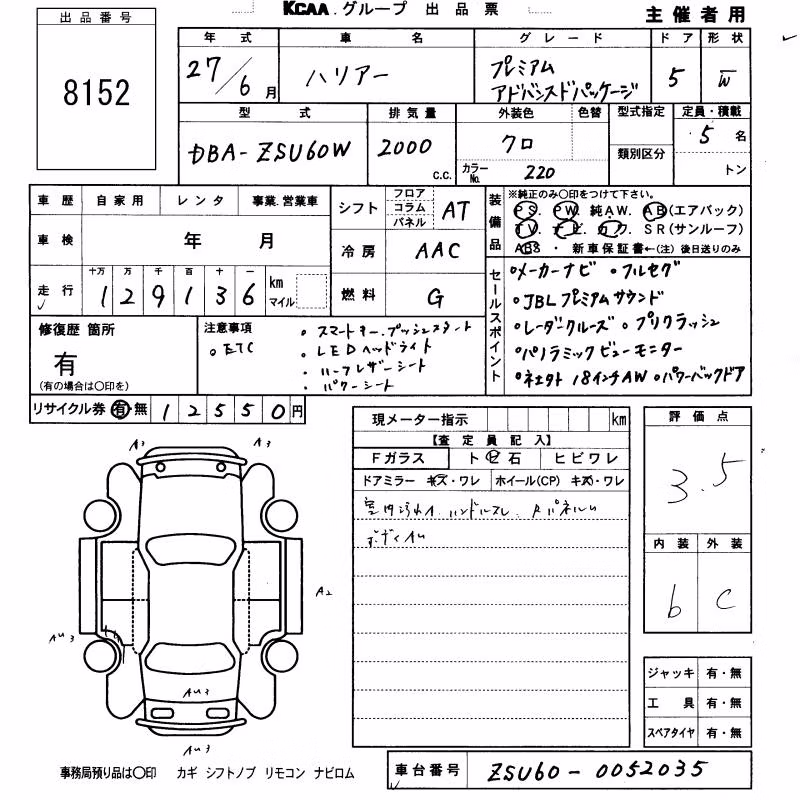 KCAA.グループ 出品票
主催者用
出品番号
8152
年式 車名 グレード ドア 形状
27/6月 ハリアー プレミアム アドバンスドパッケージ 5 W
型式 排気量 外装色 色替 型式指定 定員・積載
DBA-ZSU60W 2000 c.c. クロ 類別区分 5名
カラーNo. 220 トン
車歴 自家用 レンタ 事業.営業車
車検 年 月
走行 十万 万 千 百 十 一 km マイル
129136
シフト フロア コラム パネル AT
冷房 AAC
燃料 G
装備品 ※純正のみ〇印をつけて下さい。
PS. PW. 純AW. AB(エアバック)
TV. ナビ. カワ. SR(サンルーフ)
ABS ・ 新車保証書←(注) 後日送りのみ
セールスポイント
・メーカーナビ ・フルセグ
・JBLプレミアムサウンド
・レーダークルーズ ・プリクラッシュ
・パノラミックビューモニター
18インチAW ・パワーバックドア
修復歴 箇所
有
(有の場合は〇印を)
注意事項
・ETC
・スマートキー.プッシュスタート
・LEDヘッドライト
・ハーフレザーシート
・パワーシート
リサイクル券 有 無 12550円
現メーター指示 km
【査定員記入】
Fガラス トビ石 ヒビワレ
ドアミラー キズ・ワレ ホイール(CP) キズ・ワレ
評価点
3.5
内装 外装
b C
A3 A3
A2
AU3
AU3
AU3
ジャッキ 有・無
工具 有・無
スペアタイヤ 有・無
事務局預り品は〇印 カギ シフトノブ リモコン ナビロム
車台番号 ZSU60-0052035